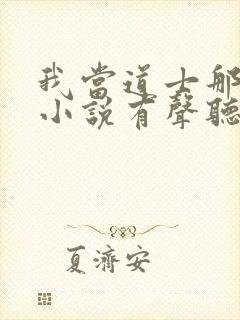 我當道士那
小說有聲聽
夏濟安